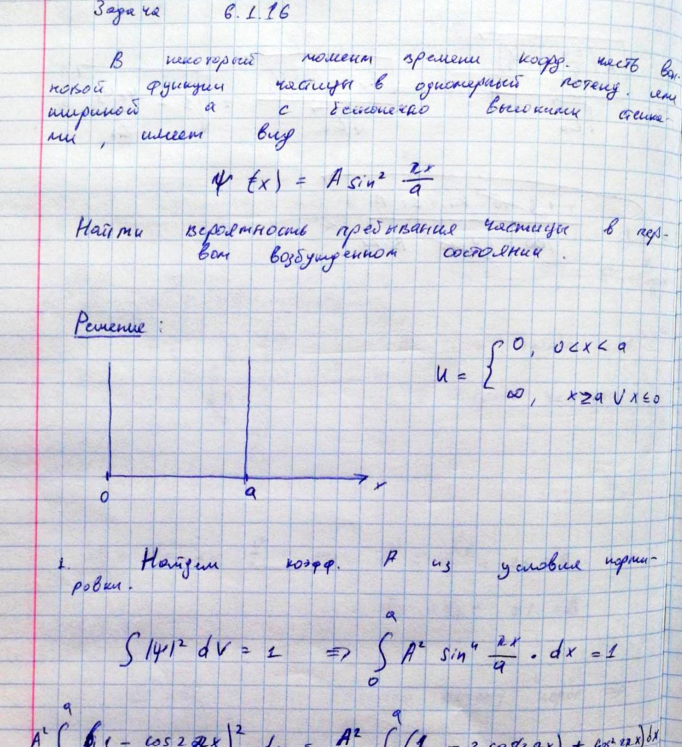 Задача 6.1.16
В некоторый момент времени коорд. часть вол-
новой функции частицы в одномерный потенц. яме
шириной a с бесконечно высокими стенка-
ми, имеет вид
ψ(x) = A sin² πx/a
Найти вероятность пребывания частицы в пер-
вом возбужденном состоянии.
Решение:
U = { 0, 0<x<a
∞, x≥a ∨ x≤0
0 a x
1. Найдем коэфф. A из условия норми-
ровки.
∫|ψ|² dV = 1 ⇒ ∫₀ᵃ A² sin⁴ πx/a · dx = 1